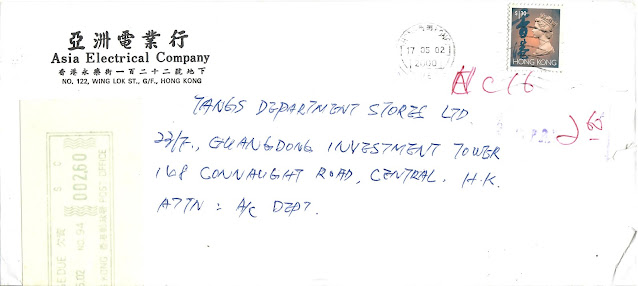 亞洲電業行
Asia Electrical Company
香港永樂街一百二十二號地下
NO. 122, WING LOK ST., G/F., HONG KONG
17 05 02
2000
$1.30
香港
HONG KONG
TANGS DEPARTMENT STORES LTD.
23/F., GUANGDONG INVESTMENT TOWER
148 CONNAUGHT ROAD, CENTRAL. H.K.
ATTN : A/C DEPT.
2 60
002.60
欠資
NO. 94
香港郵政署 POST OFFICE